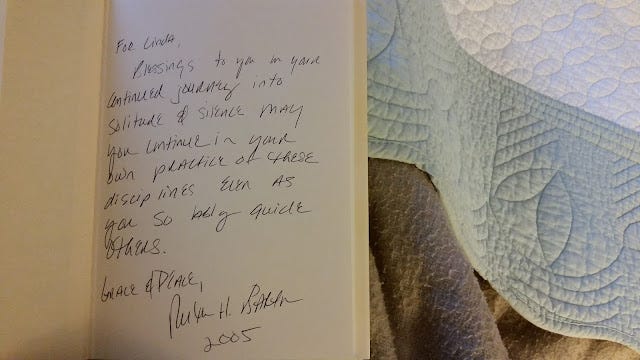 For Linda,
Blessings to you in your
continued journey into
solitude & silence may
you continue in your
own practice of these
disciplines even as
you so ably guide
others.
Grace & Peace,
Ruth H. Barton
2005